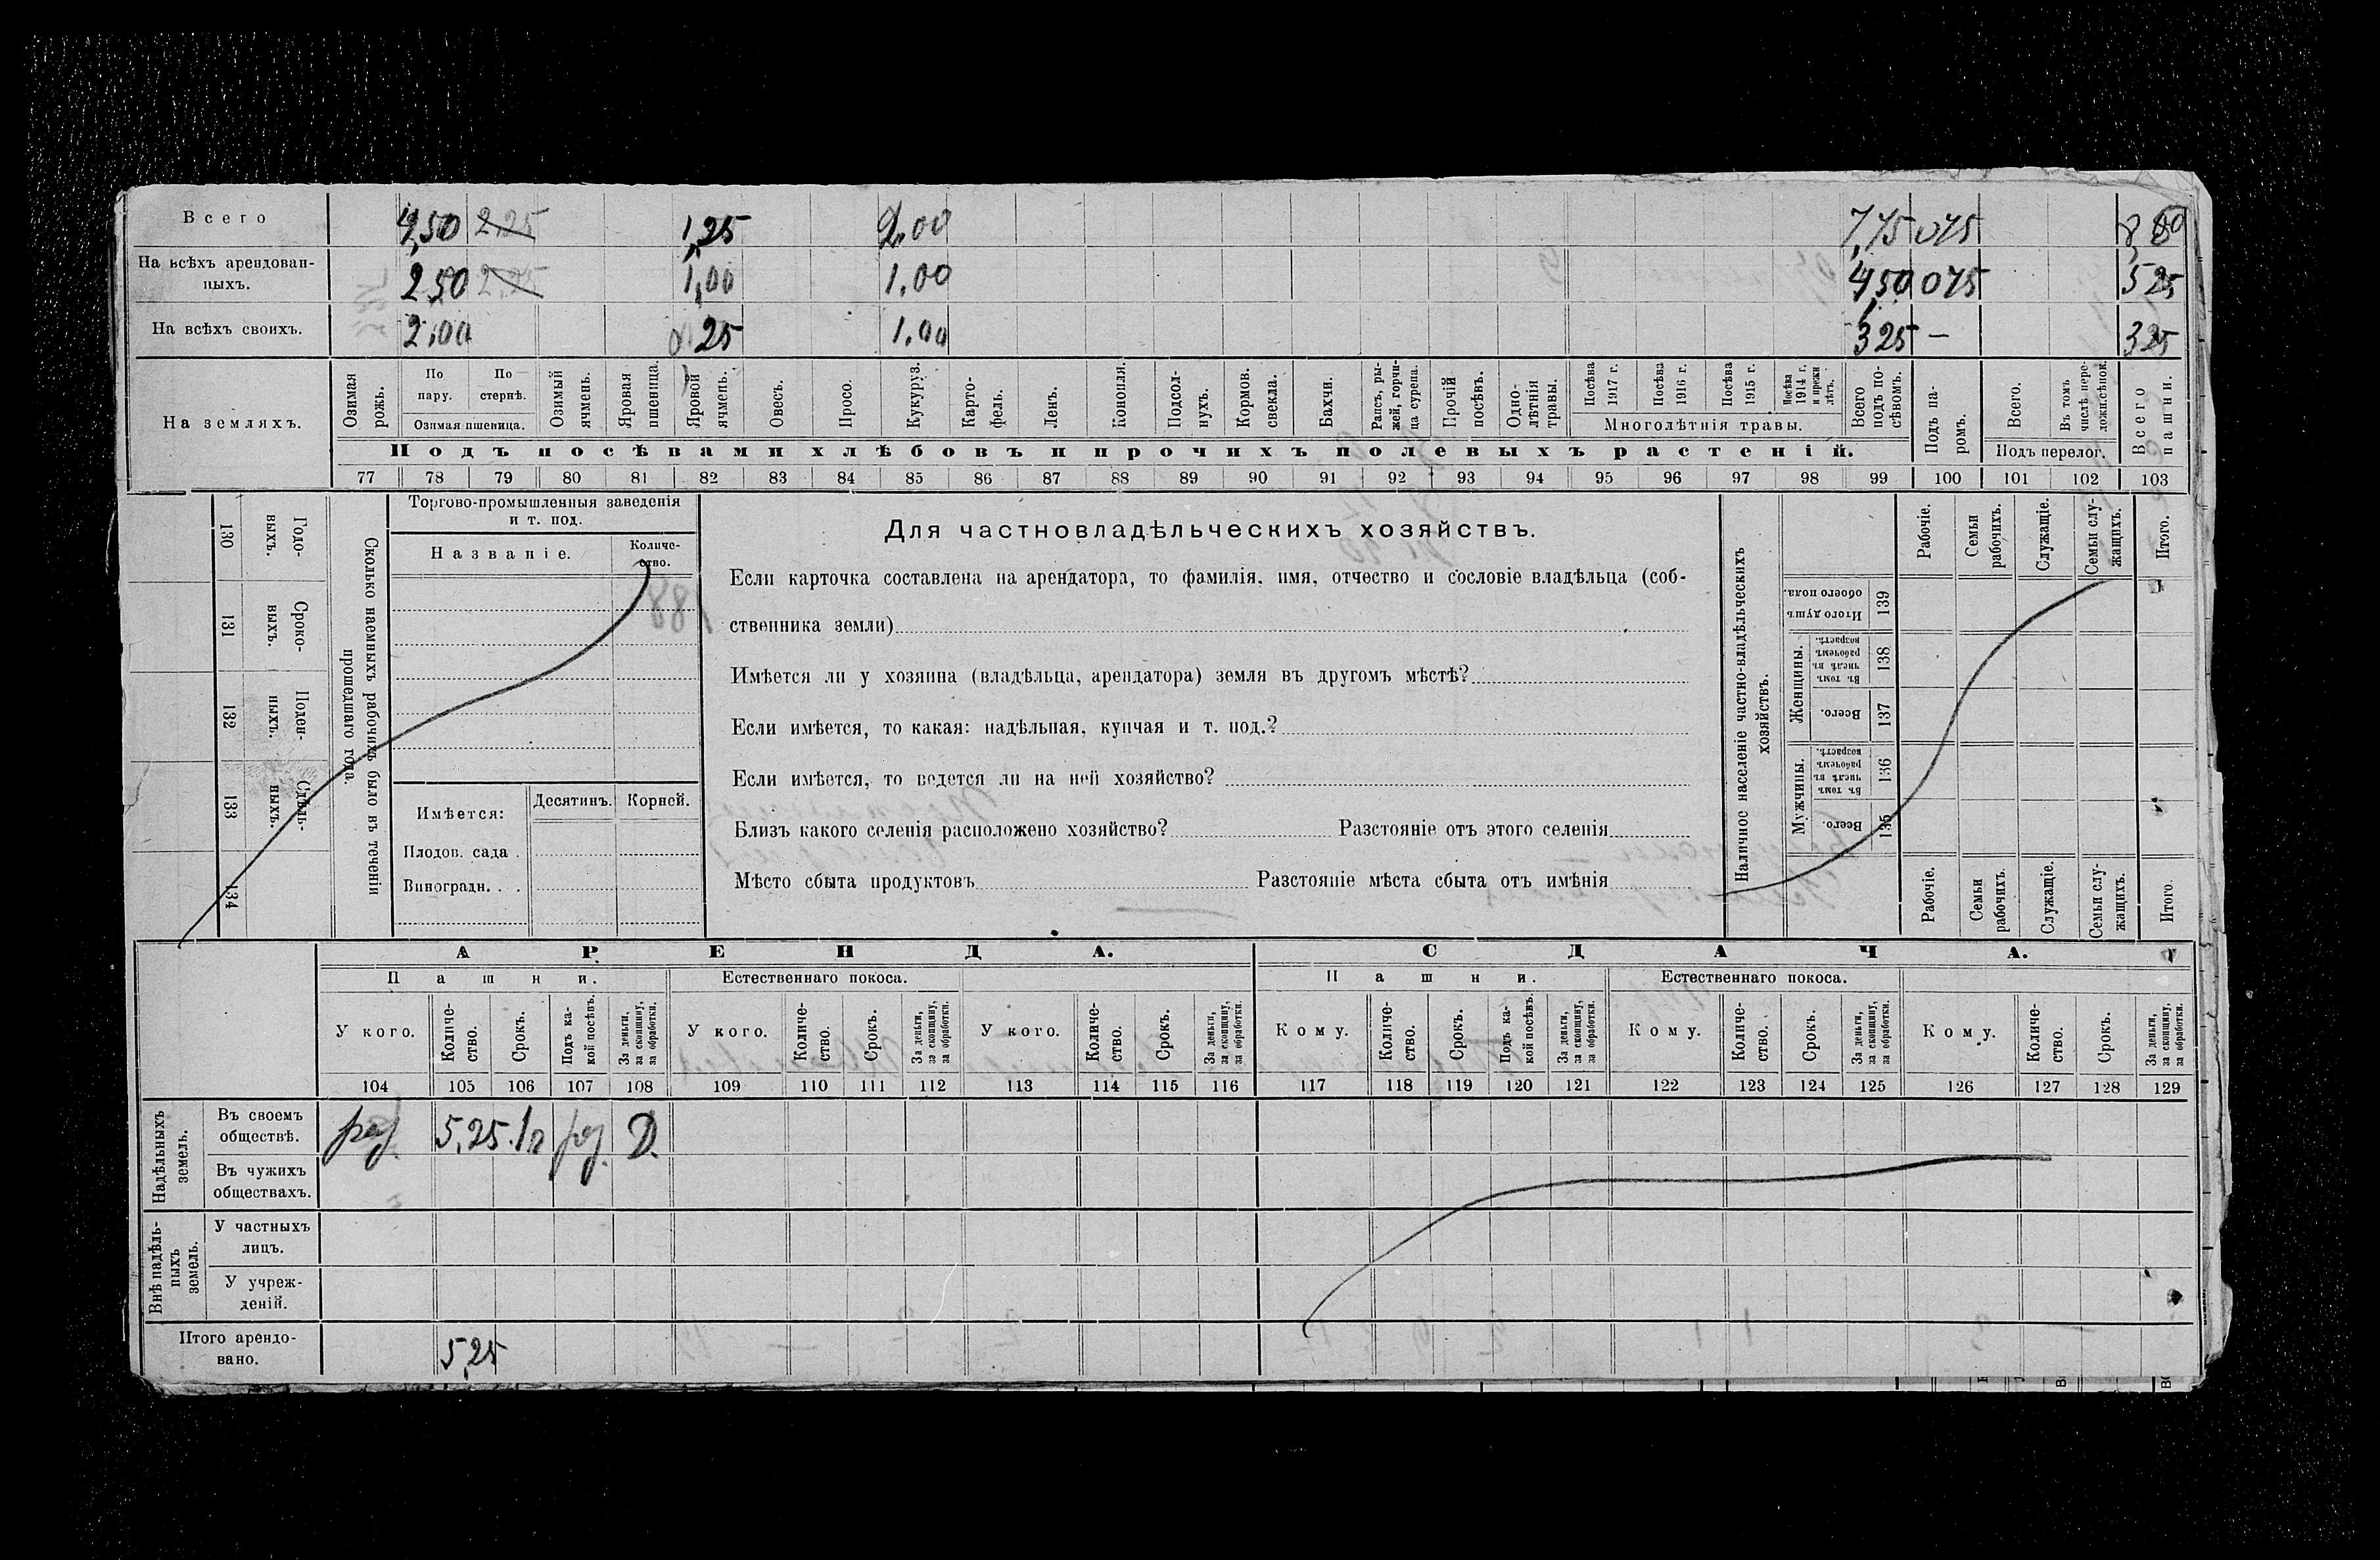 Всего 4,50 2,25 1,25 2.00 7,75 075 8 50
На всѣхъ арендован-
ныхъ. 2 50 2,25 1,00 1.00 4,50 075 5 25
На всѣхъ своихъ. 2,00 25 1.00 3 25 — 3 25
На земляхъ.
Озимая рожь.
По пару.
По стернѣ.
Озимая пшеница.
Озимый ячмень.
Яровая пшеница.
Яровой ячмень.
Овесъ.
Просо.
Кукуруз.
Карто-
фель.
Ленъ.
Конопля.
Подсол-
нухъ.
Кормов. свекла.
Бахчи.
Рапсъ, ры-
жей, горчи-
ца сурепа.
Прочій посѣвъ.
Одно-
лѣтнія травы.
Посѣва 1917 г.
Посѣва 1916 г.
Посѣва 1915 г.
Посѣва 1914 г. и прежн лѣтъ.
Многолѣтнія травы.
Всего подъ по-
сѣвомъ.
Подъ па-
ромъ.
Всего.
Въ томъ числѣ пере-
ложн.сѣнок.
Подъ перелог.
Всего пашни.
Подъ посѣвами хлѣбовъ и прочихъ полевыхъ растеній.
77 78 79 80 81 82 83 84 85 86 87 88 89 90 91 92 93 94 95 96 97 98 99 100 101 102 103
130 Годо-
выхъ.
131 Сроко-
выхъ.
132 Поден-
ныхъ.
133 Сдѣль-
ныхъ.
134
Сколько наемныхъ рабочихъ было въ теченіи
прошедшаго года.
Торгово-промышленныя заведенія
и т. под.
Названіе.
Количе-
ство.
Имѣется: Десятинъ. Корней.
Плодов. сада .
Виноградн. . .
Для частновладѣльческихъ хозяйствъ.
Если карточка составлена на арендатора, то фамилія, имя, отчество и сословіе владѣльца (соб-
ственника земли)
Имѣется ли у хозяина (владѣльца, арендатора) земля въ другомъ мѣстѣ?
Если имѣется, то какая: надѣльная, купчая и т. под.?
Если имѣется, то ведется ли на ней хозяйство?
Близъ какого селенія расположено хозяйство? Разстояніе отъ этого селенія
Мѣсто сбыта продуктовъ Разстояніе мѣста сбыта отъ имѣнія
Наличное населеніе частно-владѣльческихъ
хозяйствъ.
Рабочіе.
Семьи рабочихъ.
Служащіе.
Семьи слу-
жащихъ.
Итого.
Итого душъ обоего пола. 139
Женщины.
Въ томъ числѣ въ рабочемъ возрастѣ. 138
Всего. 137
Мужчины.
Въ томъ числѣ въ рабочемъ возрастѣ. 136
Всего. 135
Рабочіе.
Семьи рабочихъ.
Служащіе.
Семьи слу-
жащихъ.
Итого.
АРЕНДА. СДАЧА.
Пашни. Естественнаго покоса. Пашни. Естественнаго покоса.
У кого.
Количе-
ство.
Срокъ.
Подъ ка-
кой посѣвъ.
За деньги, за скопщину, за обработки.
У кого.
Количе-
ство.
Срокъ.
За деньги, за скопщину, за обработки.
У кого.
Количе-
ство.
Срокъ.
За деньги, за скопщину, за обработки.
Кому.
Количе-
ство.
Срокъ.
Подъ ка-
кой посѣвъ.
За деньги, за скопщину, за обработки.
Кому.
Количе-
ство.
Срокъ.
За деньги, за скопщину, за обработки.
Кому.
Количе-
ство.
Срокъ.
За деньги, за скопщину, за обработки.
104 105 106 107 108 109 110 111 112 113 114 115 116 117 118 119 120 121 122 123 124 125 126 127 128 129
Надѣльныхъ земель.
Въ своемъ
обществѣ. раз. 5,25 1 г раз. Д.
Въ чужихъ
обществахъ.
Внѣ надѣль-
ныхъ земель.
У частныхъ
лицъ.
У учреж-
деній.
Итого арендо-
вано. 5,25